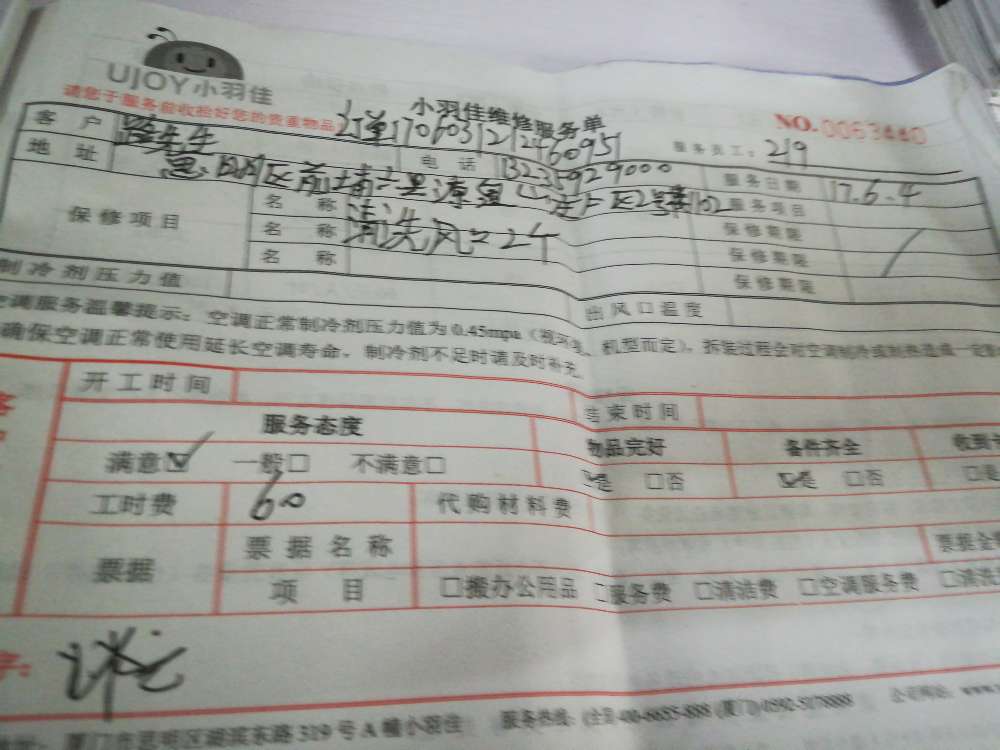 UJOY小羽佳
小羽佳维修服务单
请您于服务前收拾好您的贵重物品
NO.0063440
订单1706031212460951
服务员工:219
客户 先生 电话 13225929000 服务日期 17.6.4
地址 服务项目
保修项目 名称 清洗风 保修期限
名称 保修期限
名称 保修期限
制冷剂压力值 出风口温度
空调服务温馨提示:空调正常制冷剂压力值为0.45mpa 机型而定),拆装过程会对空调制冷
确保空调正常使用延长空调寿命,制冷剂不足时请及时补充
开工时间 结束时间
服务态度 物品完好 备件齐全 收到
满意☑ 一般□ 不满意□ ☑是 □否 ☑是 □否 □是
工时费 60 代购材料费
票据 票据名称 票据金
项目 □搬办公用品 □服务费 □清洁费 □空调服务费 □清洗
字:
厦门市思明区湖滨东路319号A幢小羽佳 服务热线: 公司网站: